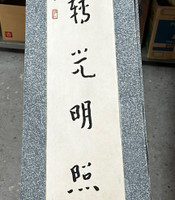 光
明
照